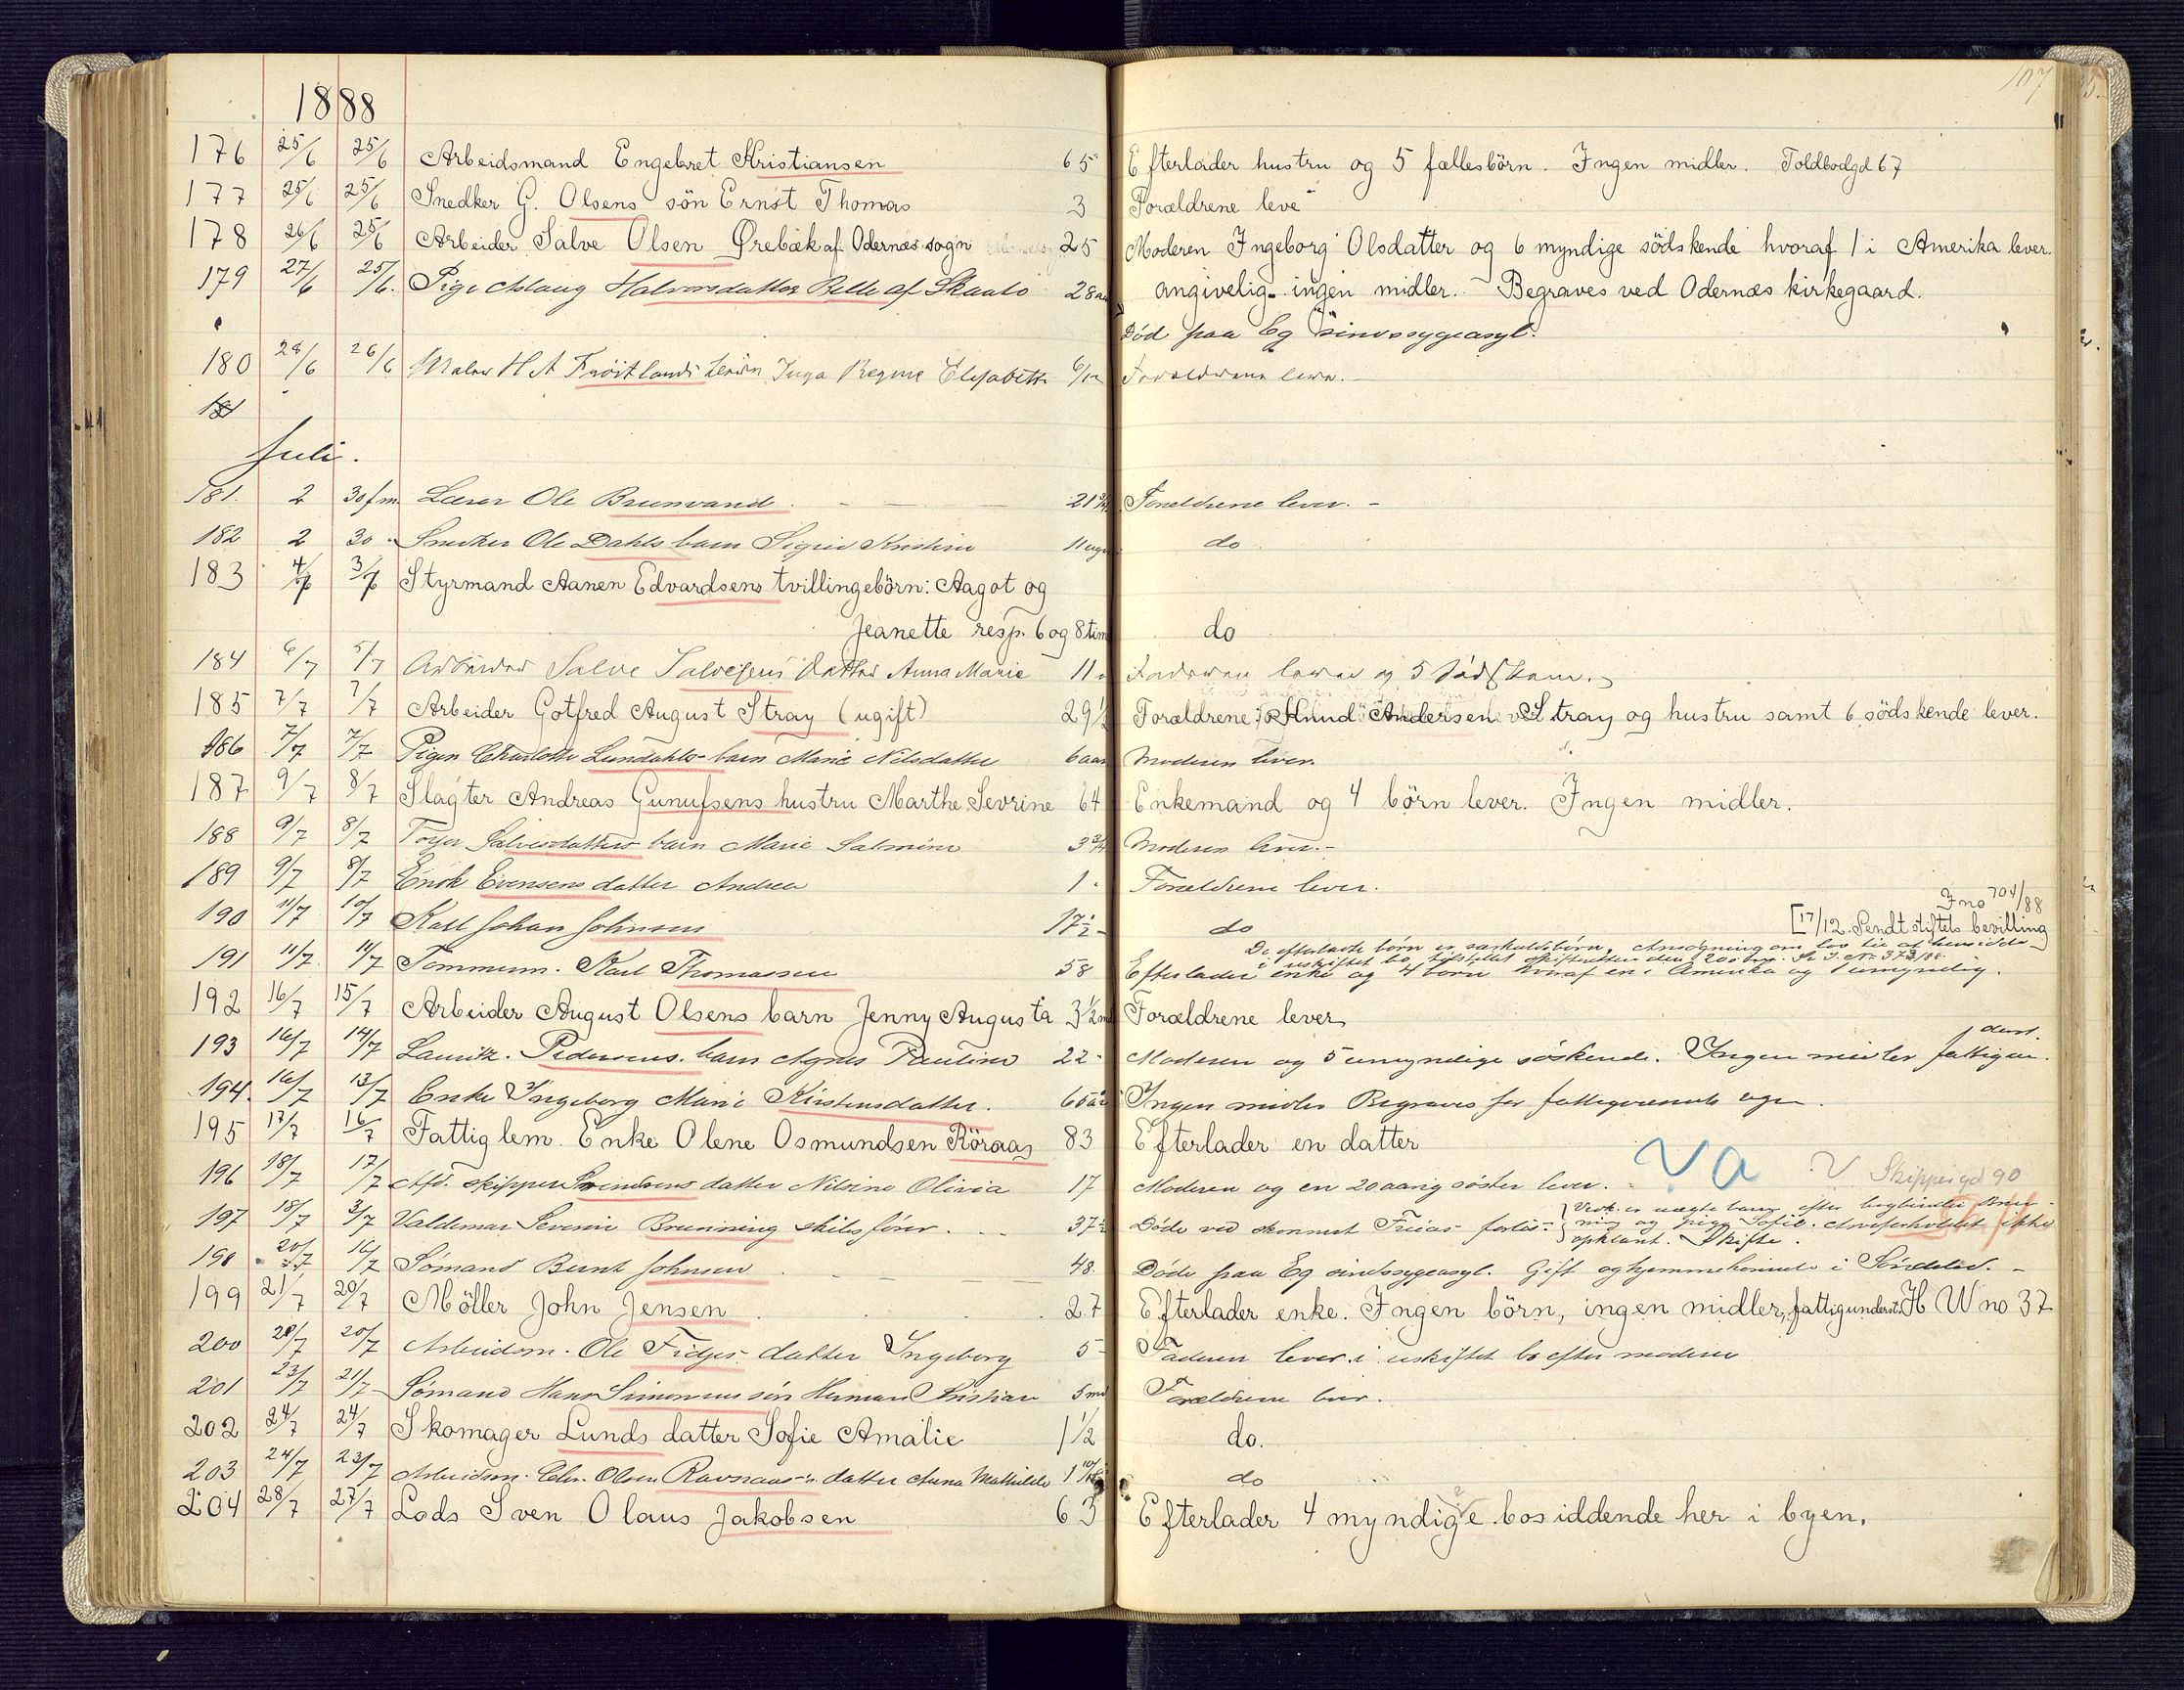 107
1888
176 25/6 25/6 Arbeidsmand Engebret Kristiansen 65 Efterlader hustru og 5 fællesbörn. Ingen midler. Toldbodgd 67
177 25/6 25/6 Snedker G. Olsens sön Ernst Thomas 3 Forældrene leve
178 26/6 25/6 Arbeider Salve Olsen Ørebæk af Odernæs sogn 25 Moderen Ingeborg Olsdatter og 6 myndige södskende hvoraf 1 i Amerika lever.
angivelig ingen midler. Begraves ved Odernæs kirkegaard.
179 27/6 25/6 Pige Aslaug Halvorsdatter Belle af Skaato 28 aar
Død paa Eg sindssygeasyl.
180 28/6 26/6 Maler H A Frøitlands Inga Regine Elisabeth 6/12 Forældrene lever.
181
Juli.
181. 2 30 fm. Lærer Ole Brunvand 21 Forældrene lever.
182 2 30 Snedker Ole Dahls barn Sigrid Kristine 11 uger do
183 4/7 3/7 Styrmand Aanen Edvardsens tvillingebörn: Aagot og
Jeanette resp. 6 og 8 tim do
184 6/7 5/7 Arbeider Salve Salvesens datter Anna Marie 11 Forældrene lever og 5 södskende.
185 7/7 7/7 Arbeider Gotfred August Stray (ugift) 29 1/2 Forældrene Knud Andersen Stray og hustru samt 6 södskende lever.
186 7/7 7/7 Pigen Charlotte Lundahls barn Marie Nilsdatter 6 aar Moderen lever.
187 9/7 8/7 Slagter Andreas Gunufsens hustru Marthe Sevrine 64 Enkemand og 4 börn lever. Ingen midler.
188 9/7 8/7 Salvesdatters barn Marie Salmine 3 Moderen lever.
189 9/7 8/7 Enok Evensens datter Andrea 1 Forældrene lever.
190 11/7 10/7 Karl Johan Johnsen 17 1/2 do
Jno 704/88
[17/12. Sendt stiftets bevilling
De efterladte börn er særkuldsbörn. Ansøgning om lov til at hensidde
i uskiftet bo, tilstillet skifteretten den
191 11/7 11/7 Tømmerm. Karl Thomassen 58 Efterlader enke og 4 børn hvoraf en i Amerika og 1 umyndig.
192 16/7 15/7 Arbeider August Olsens barn Jenny Augusta 3 1/2 md Forældrene lever
193 16/7 14/7 Lauritz Pedersens barn Agnes Pauline 22 Moderen og 5 umyndige søskende. Ingen midler fattigun-
derst.
194. 16/7 13/7 Enke Ingeborg Marie Kirstensdatter. 65 aar Ingen midler Begraves for fattigvæsnets regn.
195 17/7 16/7 Fattiglem Enke Olene Osmundsen Röraas 83 Efterlader en datter
196 18/7 17/7 Afd. skipper Svendsens datter Nilsine Olivia 17 Moderen og en 20 aarig søster lever. Skippergd 90
197 18/7 3/7 Valdemar Severin Brunning skibsfører. 37 1/2 Døde ved skonnert Frieas forlis
er uægte barn efter bogbinder Brun-
ning og pige Sofie. Arveforholdet ikke
opklart. Skifte.
198 20/7 16/7 Sømand Bernt Johnsen 48 Døde paa Eg sindssygeasyl. Gift og hjemmehørende i Søndeled.
199 21/7 20/7 Möller John Jensen 27 Efterlader enke. Ingen börn, ingen midler, fattigunderst. H W no 37
200 20/7 20/7 Arbeidsm. Ole Fidjes datter Ingeborg 5 Faderen lever i uskiftet bo efter moderen
201 23/7 21/7 Sømand Hans Simonsens søn Herman Kristian 5 md Forældrene lever.
202 24/7 24/7 Skomager Lunds datter Sofie Amalie 1 1/2 do.
203 24/7 23/7 Arbeidsm. Chr. Olsen Ravnaas's datter Anna Mathilde 1 10/12 do
204 28/7 27/7 Lods Sven Olaus Jakobsen 63 Efterlader 4 myndige bosiddende her i byen.